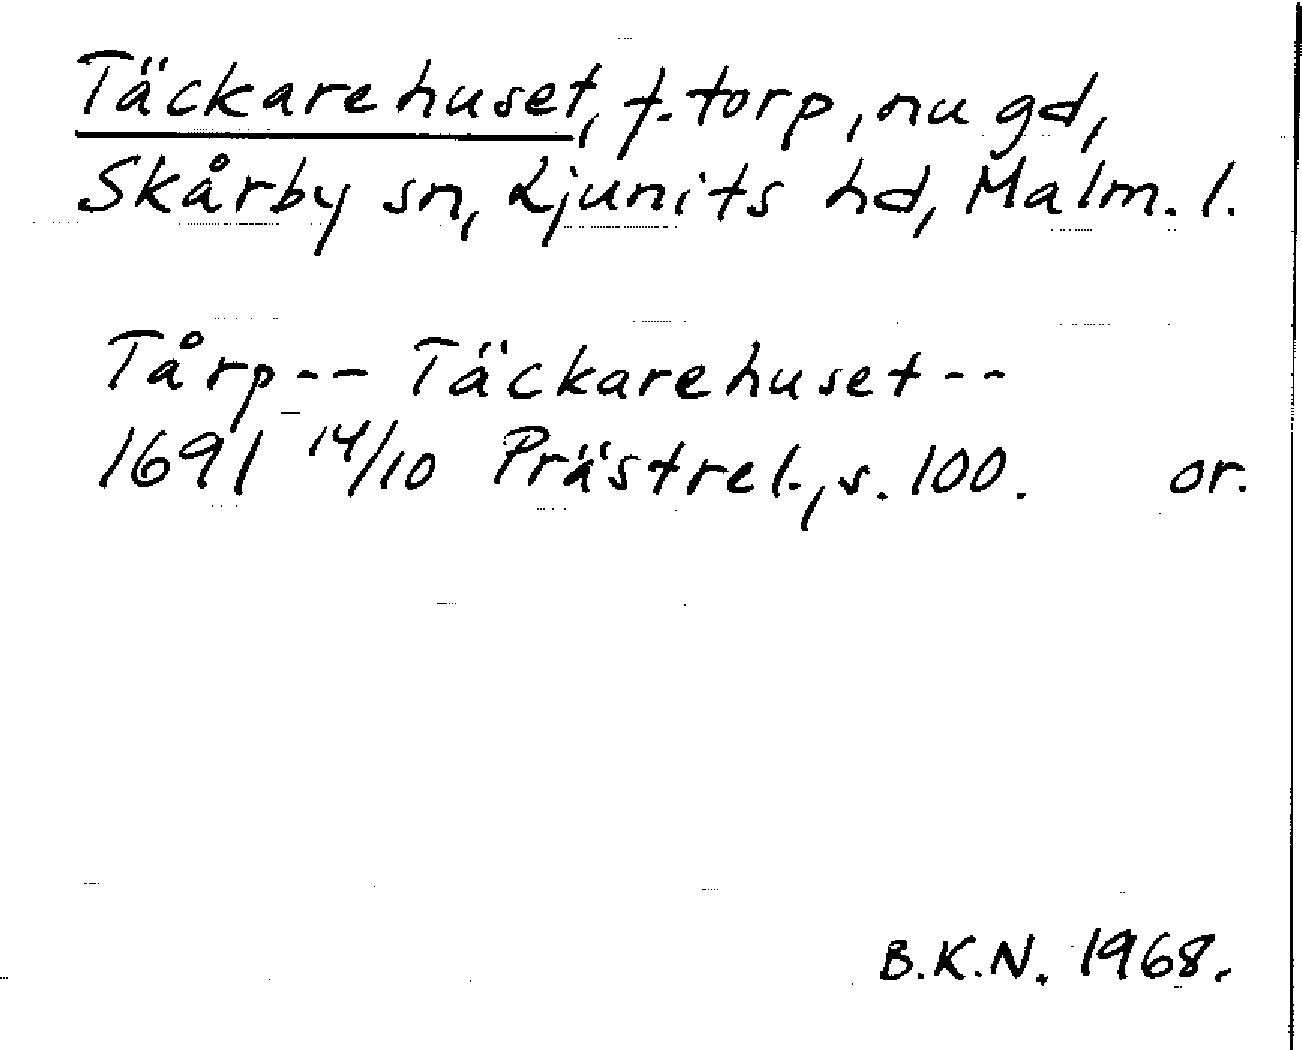 Täckarehuset, f. torp, nu gd,
Skårby sn, Ljunits hd, Malm. l.
Tårp-- Täckarehuset--
1691 14/10 Prästrel., s. 100. or.
B.K.N. 1968.